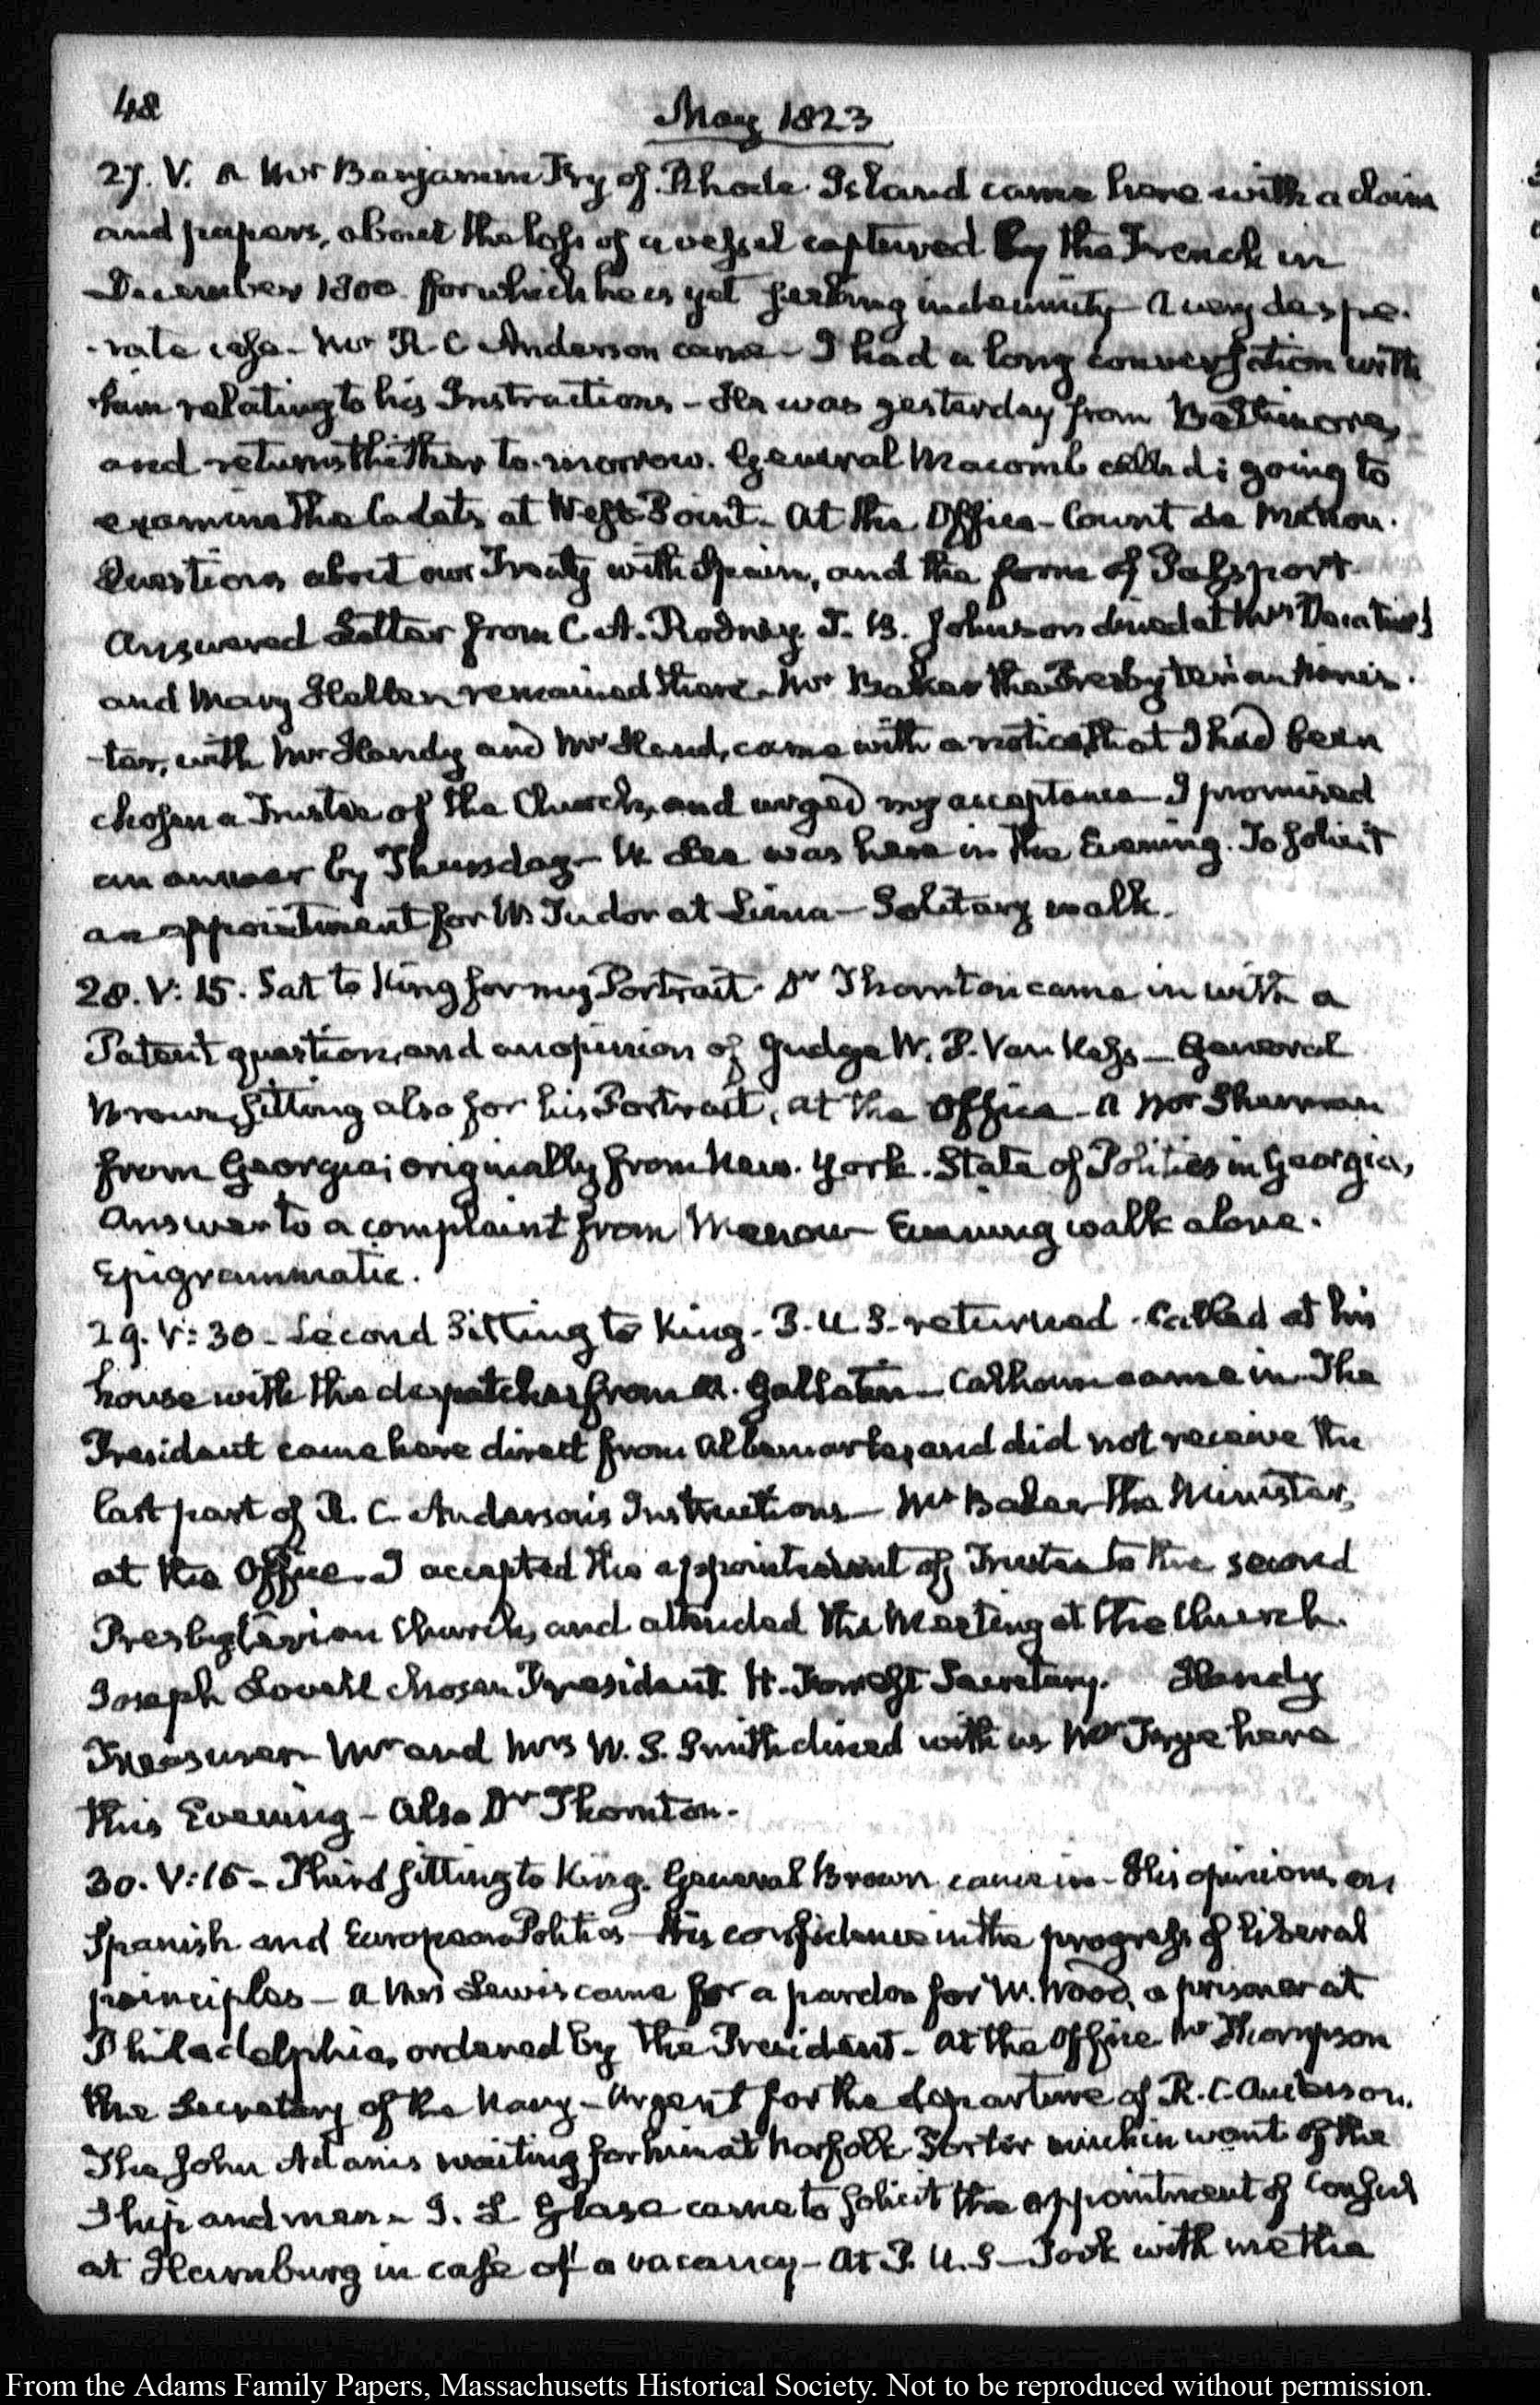 48
May 1823
27. V. A Mr Benjamin Fry of Rhode Island came here with a claim
and papers, about the loss of a vessel captured by the French in
December 1800 for which he is yet seeking indemnity— A very despe-
-rate case— Mr R C Anderson came— I had a long conversation with
him relating to his Instructions— He was yesterday from Baltimore,
and returns thither to-morrow. General Macomb called; going to
examine the Cadets at West-Point— At the Office— Count de Menou.
Questions about our Treaty with Spain, and the form of Passport—
Answered Letter from C. A. Rodney. T. B. Johnson dined at Mrs Decatur's
and Mary Hellen remained there— Mr Baker the Presbyterian Minis-
-ter, with Mr Handy and Mr , came with a notice, that I had been
chosen a Trustee of the Church, and urged my acceptance— I promised
an answer by Thursday— W. Lee was here in the Evening. To solicit
an appointment for W. Tudor at Lima— Solitary walk.
28. V: 15. Sat to King for my Portrait. Dr Thornton came in with a
Patent question, and an opinion of Judge W. P. Van Ness— General
Brown, sitting also for his Portrait, at the Office— A Mr Sherman
from Georgia; originally from New-York. State of Politics in Georgia,
Answer to a complaint from Menou— Evening walk alone.
Epigrammatic.
29. V: 30— Second Sitting to King. P. U. S. returned. Called at his
house with the despatches from A. Gallatin— Calhoun came in— The
President came here direct from Albemarle, and did not receive the
last part of R. C. Anderson's Instructions— Mr Baker the Minister,
at the Office. I accepted the appointment of Trustee to the second
Presbyterian Church, and attended the Meeting at the Church.
Joseph Lovell chosen President. H. Forrest Secretary. Handy
Treasurer— Mr and Mrs W. S. Smith dined with us Mr Frye here
this Evening— Also Dr Thornton.
30. V: 15— Third sitting to King. General Brown came in— His opinions on
Spanish and European Politics— His confidence in the progress of liberal
principles— A Mrs Lewis came for a pardon for W. Wood, a prisoner at
Philadelphia, ordered by the President— At the Office Mr Thompson
the Secretary of the Navy— Urgent for the departure of R. C. Anderson.
The John Adams waiting for him at Norfolk— Porter much in want of the
Ship and men— I. L. came to solicit the appointment of Consul
at Hamburg in case of a vacancy— At P. U. S— Took with me the
From the Adams Family Papers, Massachusetts Historical Society. Not to be reproduced without permission.